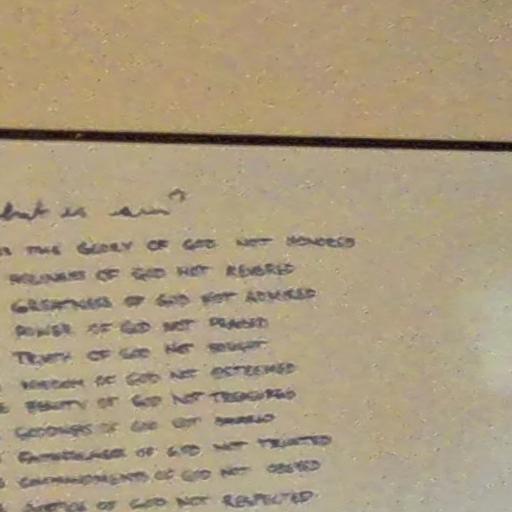 hat is sin?
THE GLORY OF GOD NOT HONORED
HOLINESS OF GOD NOT REVERED
GREATNESS OF GOD NOT ADMIRED
POWER OF GOD NOT PRAISED
TRUTH OF GOD NOT SOUGHT
WISDOM OF GOD NOT ESTEEMED
BEAUTY OF GOD NOT TREASURED
GOODNESS OF GOD NOT SAVORED
FAITHFULNESS OF GOD NOT TRUSTED
COMMANDMENTS OF GOD NOT OBEYED
JUSTICE OF GOD NOT RESPECTED